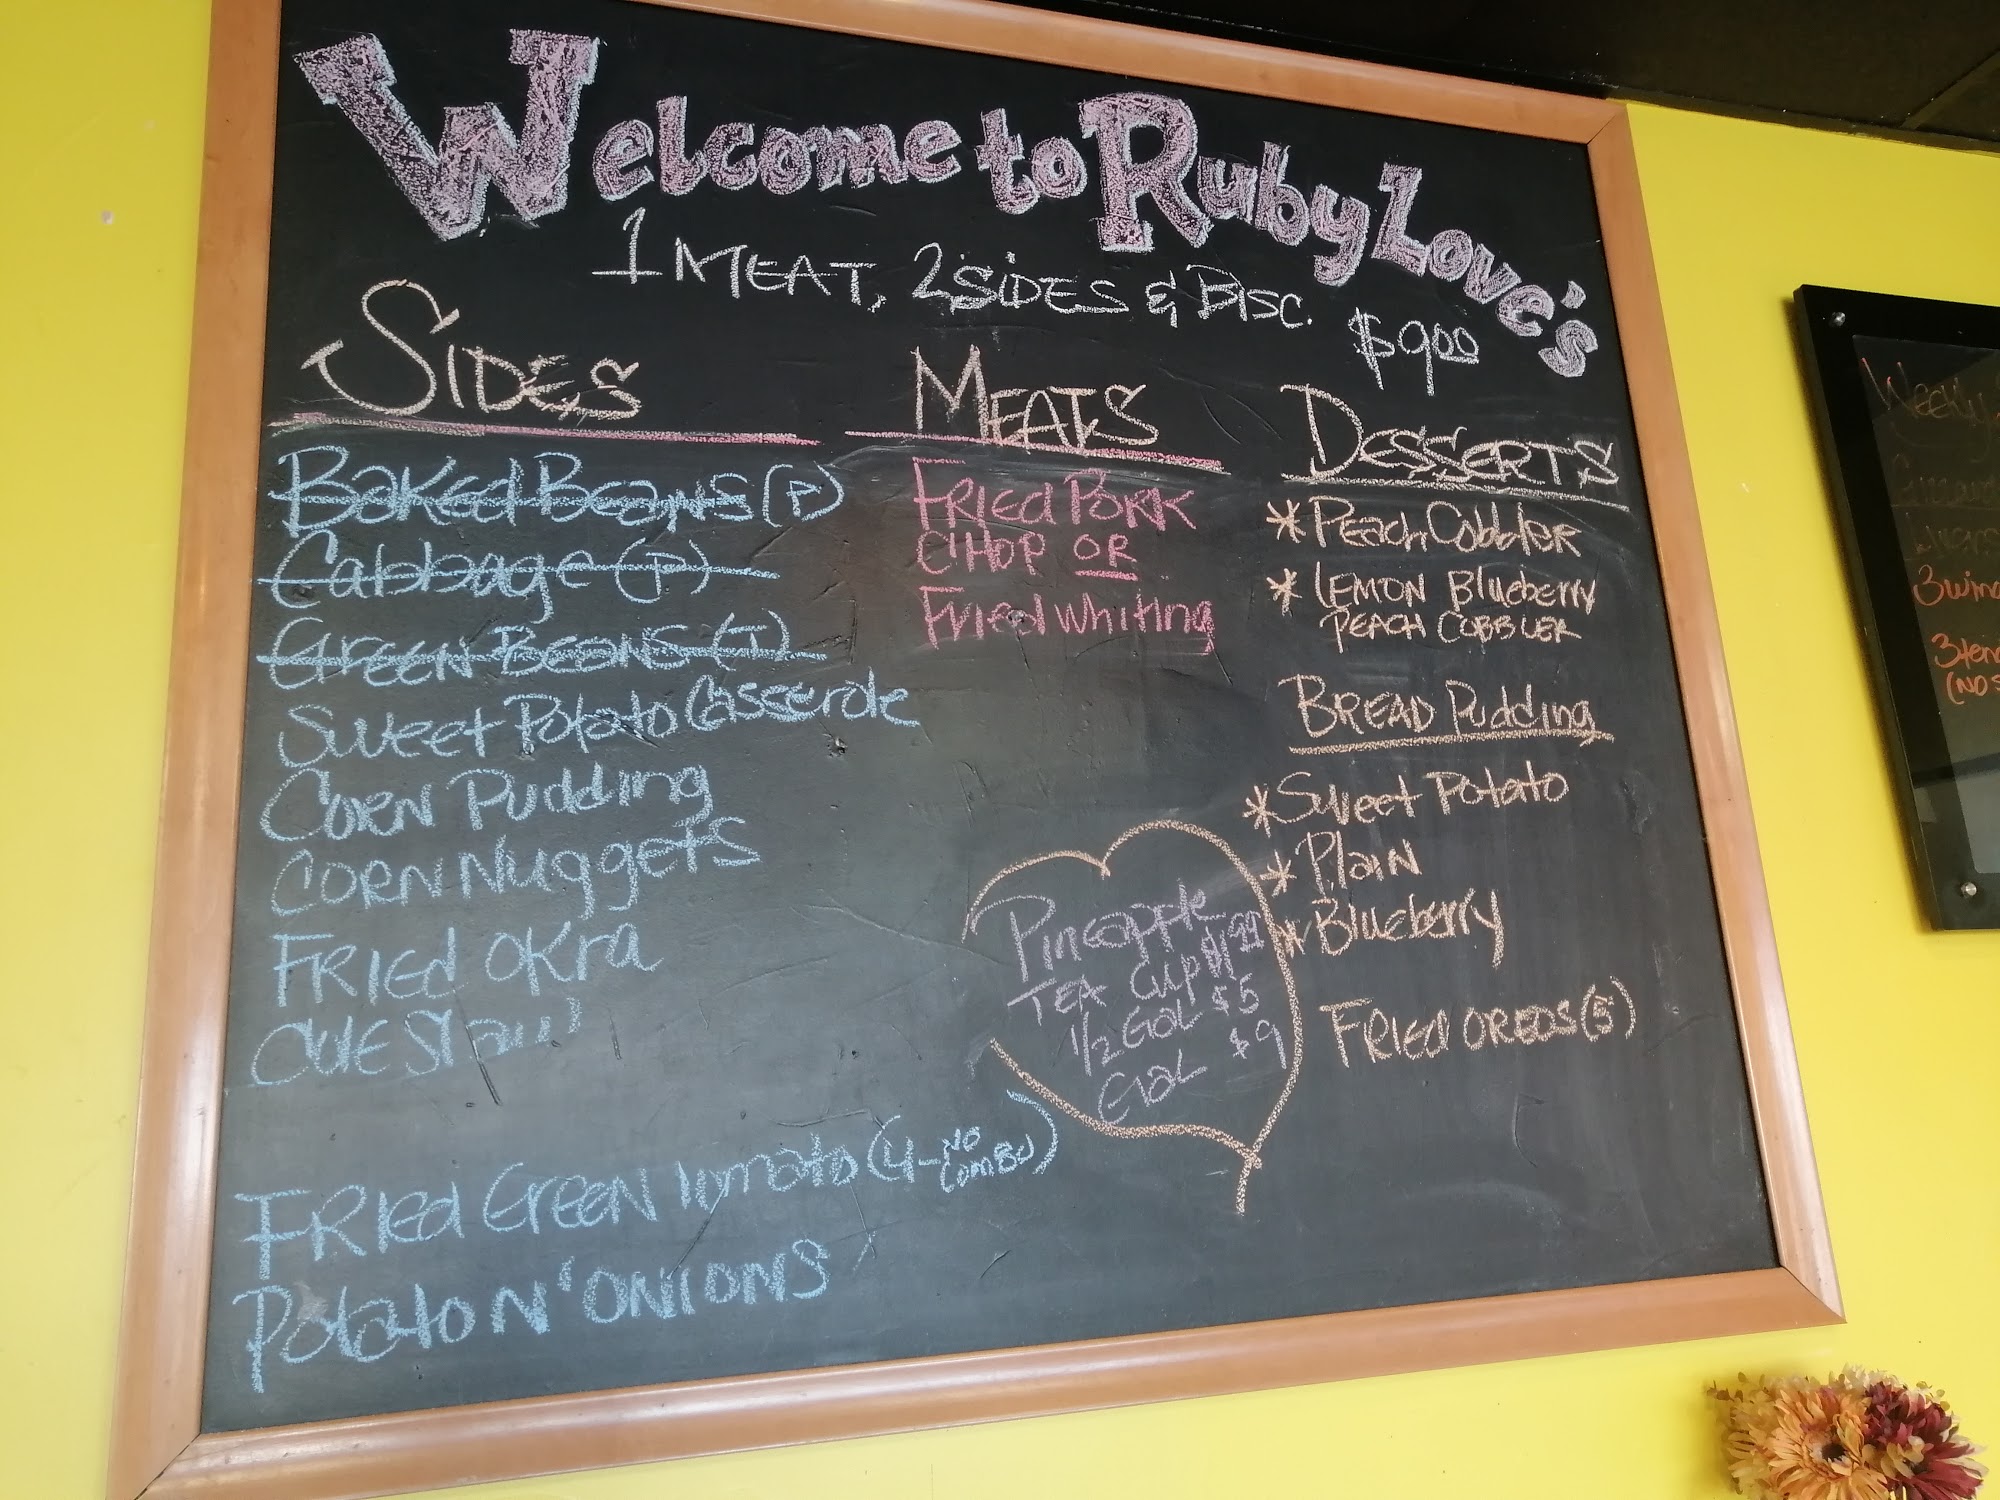 Welcome to Ruby Love's
1 MEAT, 2 SIDES & BISC.
$9.00
SIDES
Baked Beans (P)
Cabbage (P)
Green Beans (T)
Sweet Potato Casserole
Corn Pudding
Corn Nuggets
Fried Okra
Cole Slaw
Fried Green Tomato (4-NO COMBO)
Potato N' Onions
MEATS
Fried Pork
Chop or
Fried Whiting
Pineapple
Tea Cup $1.99
1/2 Gal $5
Gal $9
DESSERTS
* Peach Cobbler
* Lemon Blueberry
Peach Cobbler
Bread Pudding
* Sweet Potato
* Plain
* Blueberry
Fried Oreos (5)
Weekly
3 wing
3 tend
(NO S